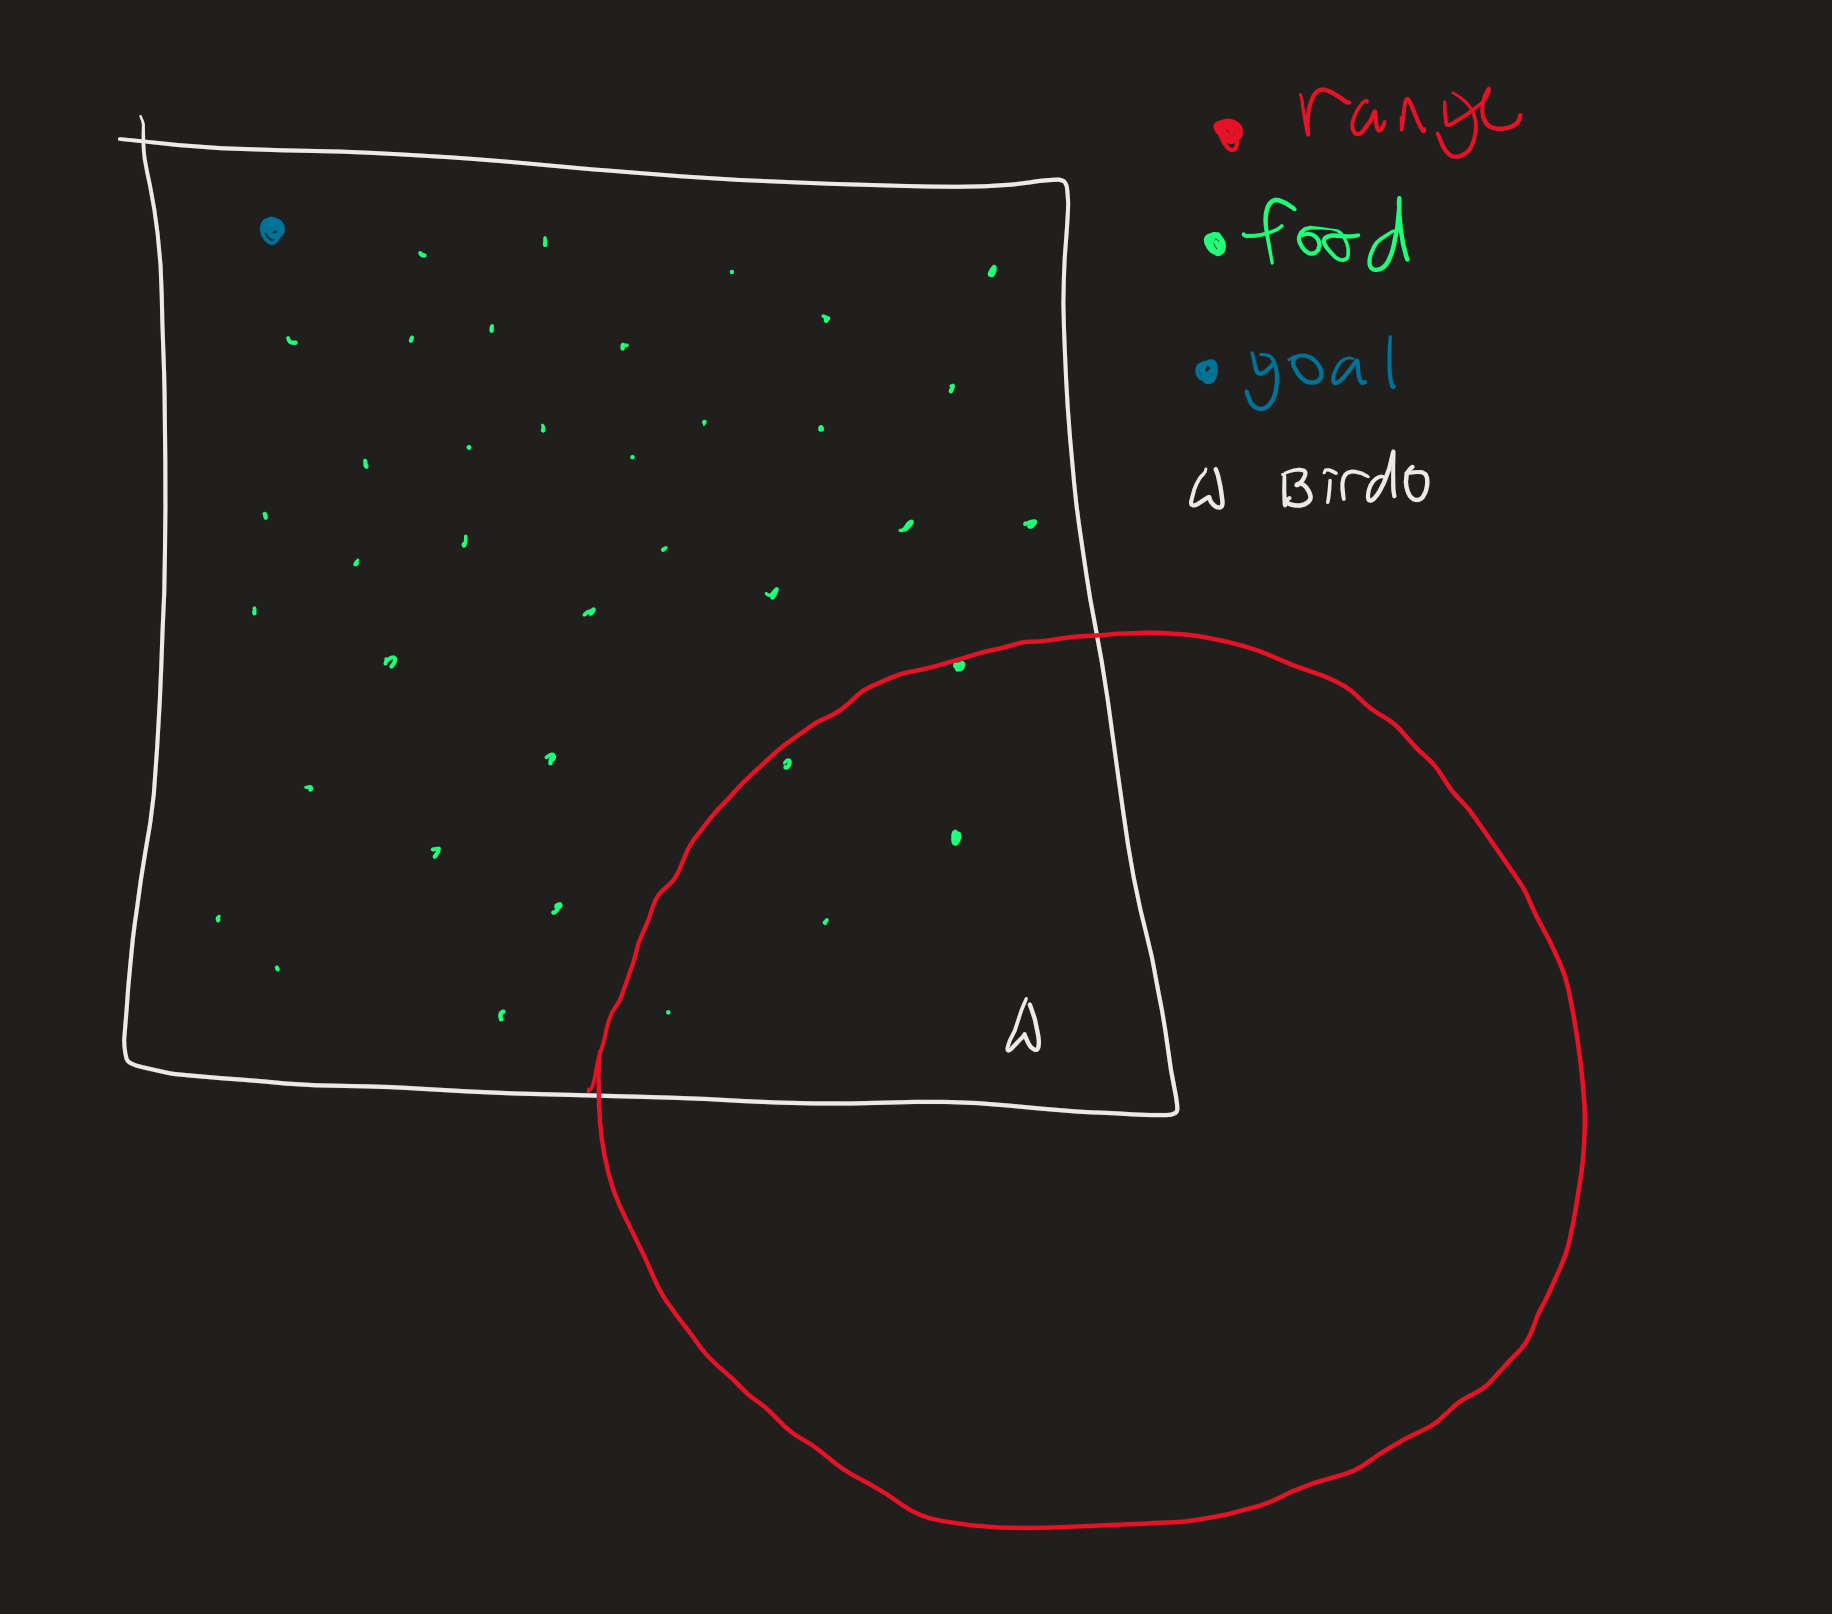 range
food
goal
Birdo